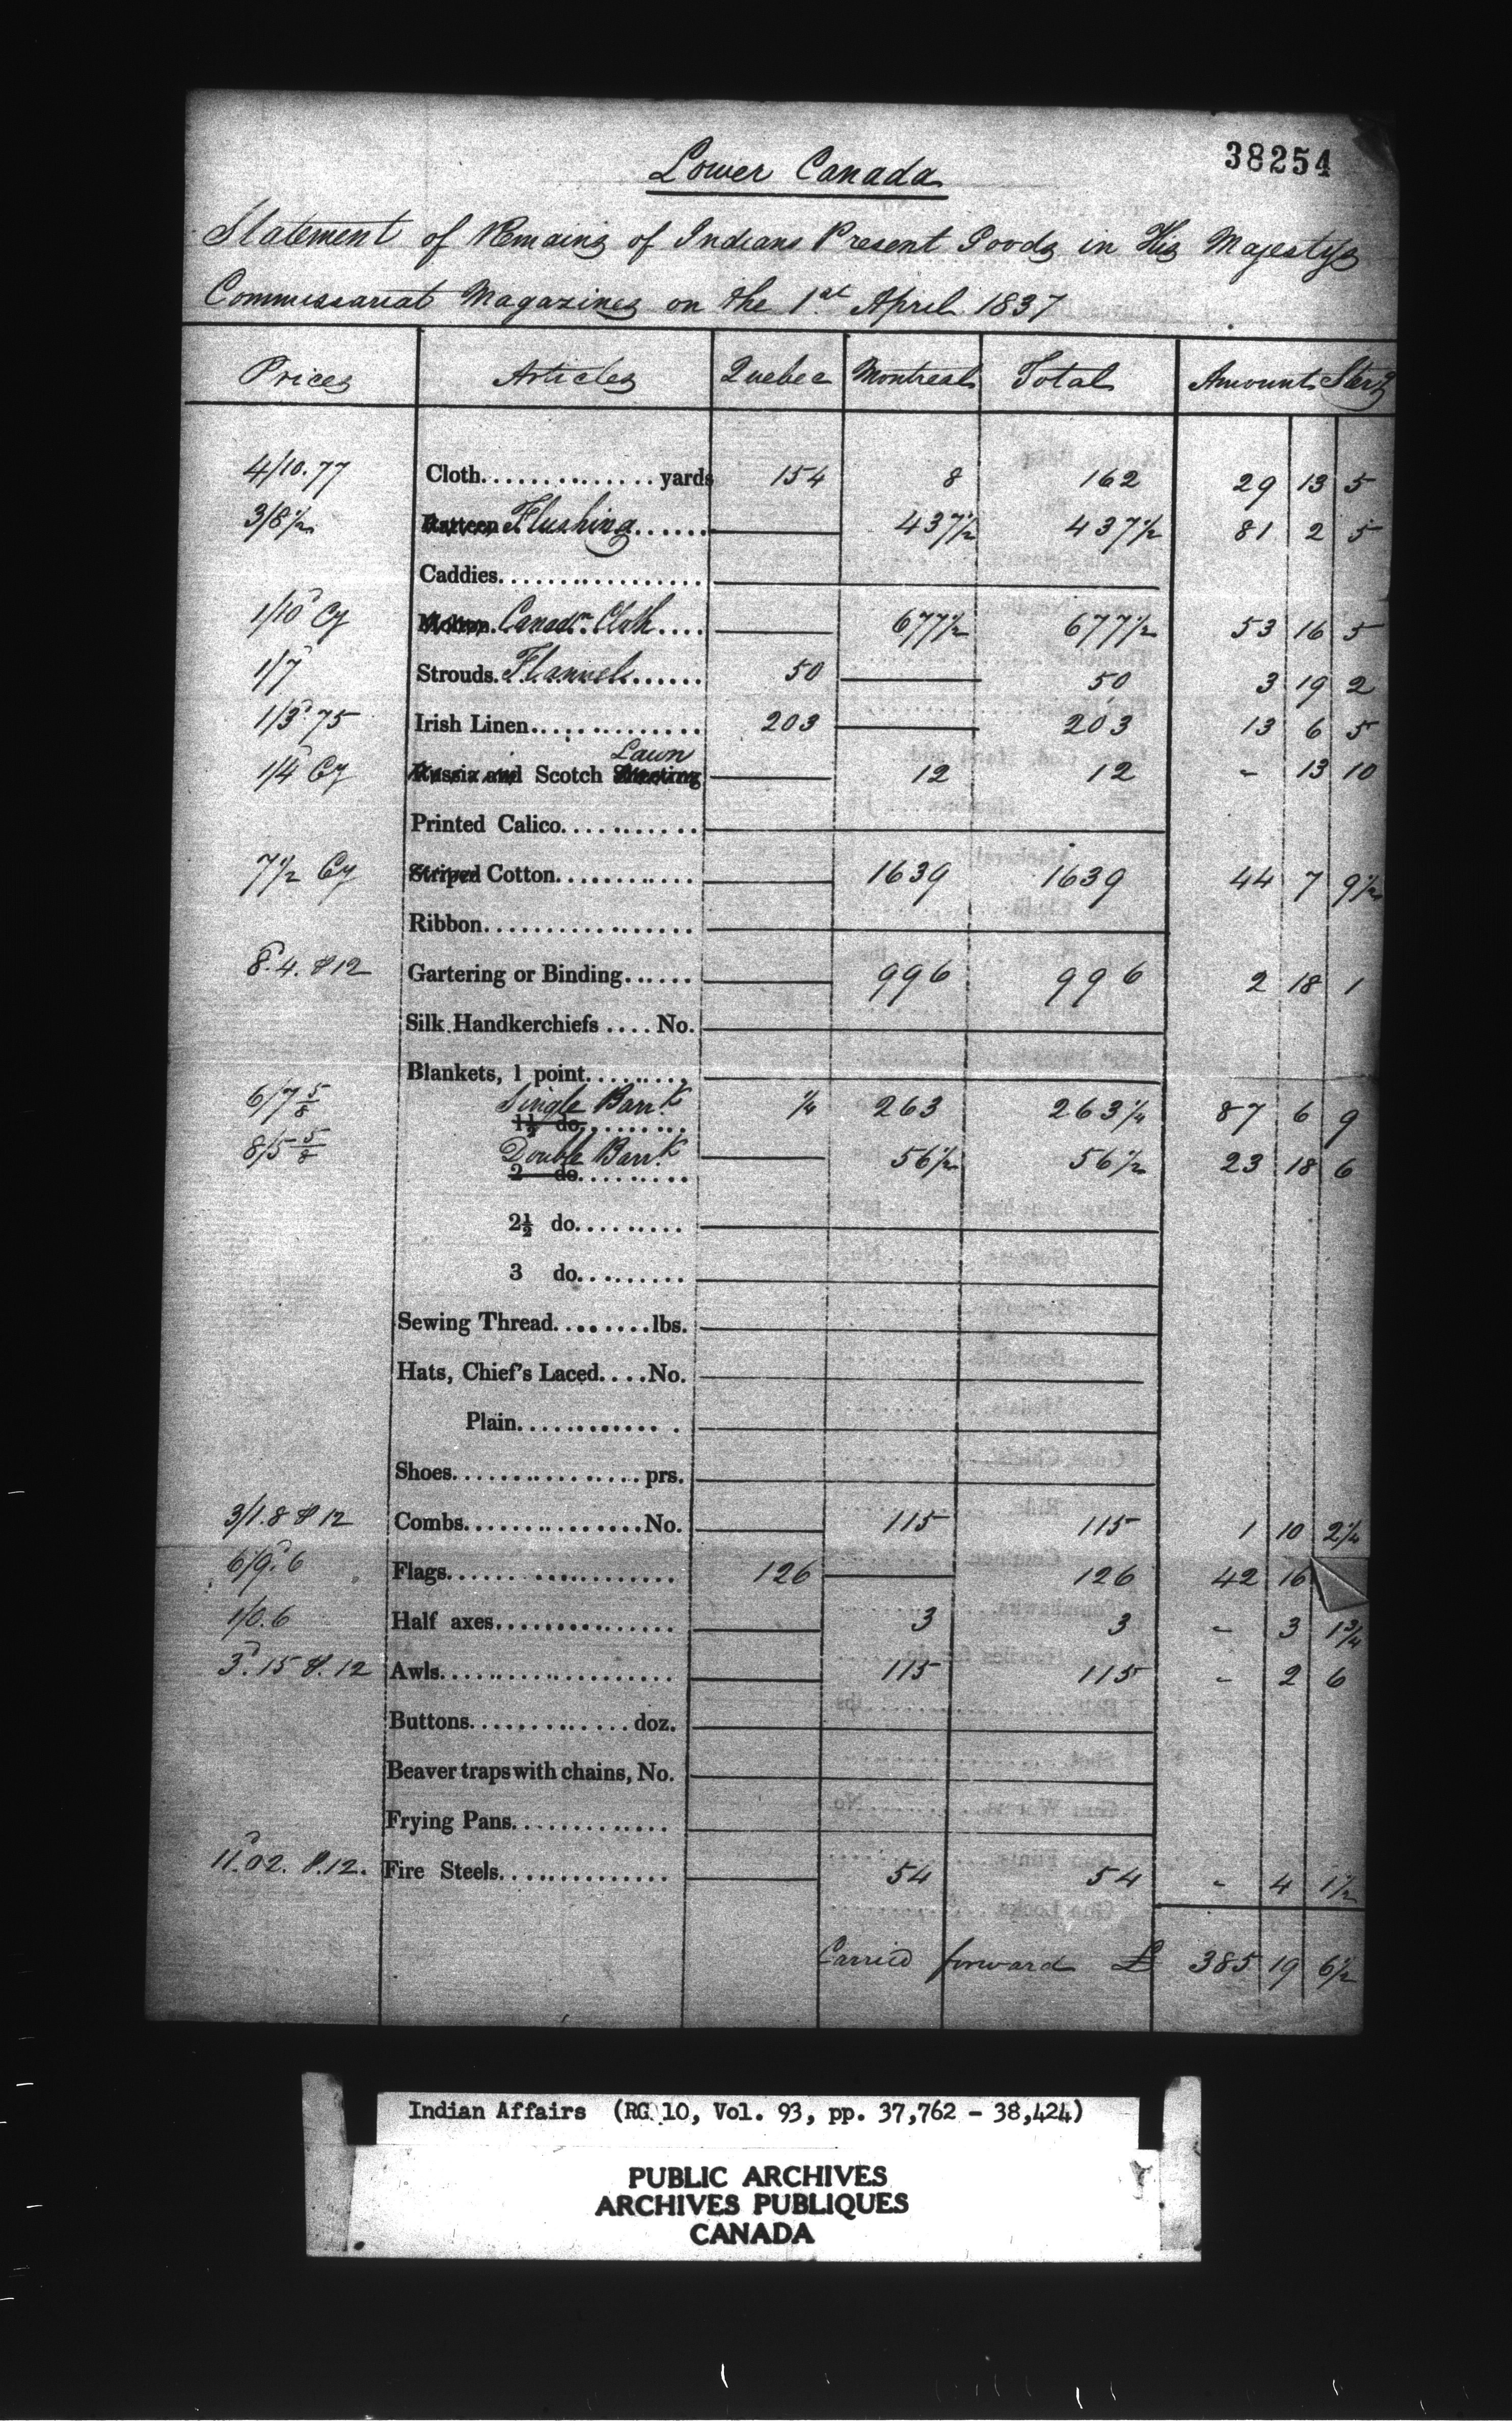 38254
Lower Canada
Statement of Remains of Indians Present Goods in His Majestys
Commissariat Magazines on the 1st April 1837
Prices Articles Quebec Montreal Total Amount Sterg
4/10.77 Cloth............... yards 154 8 162 29 13 5
3/8½ Ratteen Flushing....... 437½ 437½ 81 2 5
Caddies.................
1/10 Cy Molton. Canadn. Cloth.... 677½ 677½ 53 16 5
1/7 Strouds. Flannel...... 50 50 3 19 2
1/3.75 Irish Linen.............. 203 203 13 6 5
Lawn
1/4 Cy Russia and Scotch Sheeting 12 12 - 13 10
Printed Calico...........
7½ Cy Striped Cotton............ 1639 1639 44 7 9½
Ribbon.................
8.4. P 12 Gartering or Binding...... 996 996 2 18 1
Silk Handkerchiefs .... No.
Blankets, 1 point.........
6/7 5/8 Single Barr.k ¼ 263 263¼ 87 6 9
1½ do.........
8/5 5/8 Double Barr.k 56½ 56½ 23 18 6
2 do.........
2½ do.........
3 do.........
Sewing Thread........lbs.
Hats, Chief's Laced....No.
Plain.............
Shoes................prs.
3/1.8 P 12 Combs...............No. 115 115 1 10 2¼
6/9.6 Flags.................... 126 126 42 16
1/0.6 Half axes............... 3 3 - 3 1¾
3.15 P. 12 Awls.................... 115 115 - 2 6
Buttons.............. doz.
Beaver traps with chains, No.
Frying Pans.............
11.02. P.12. Fire Steels.............. 54 54 - 4 1½
Carried forward £ 385 19 6½
Indian Affairs (RG 10, Vol. 93, pp. 37,762 - 38,424)
PUBLIC ARCHIVES
ARCHIVES PUBLIQUES
CANADA